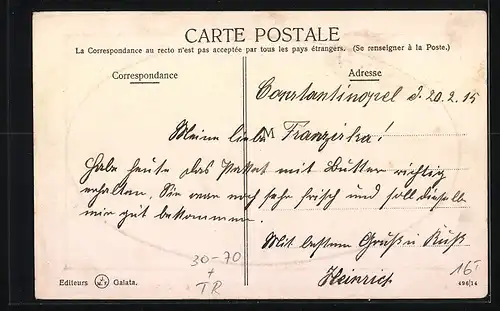 CARTE POSTALE
La Correspondance au recto n'est pas acceptée par tous les pays étrangers. (Se renseigner à la Poste.)
Correspondance
Adresse
Constantinopel d. 20.2.15
M
Meine liebe Franziska!
Habe heute das Packet mit Butter richtig
erhalten. Sie war noch sehr frisch und soll dieselbe
mir gut bekommen.
Mit bestem Gruß u Kuß
Heinrich
30-70
+
TR
16
Editeurs Galata.
496/14